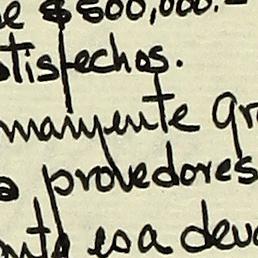 e $500,000.-
tisfechos.
mamente gr
a provedores
nte esa deu